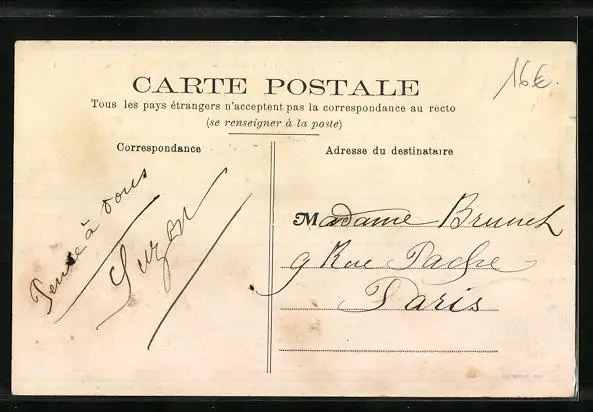 16€.
CARTE POSTALE
Tous les pays étrangers n'acceptent pas la correspondance au recto
(se renseigner à la poste)
Correspondance
Pensée à vous
Suzon
Adresse du destinataire
Madame Brunel
9 Rue Pache
Paris